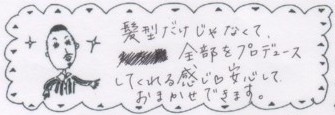 髪型だけじゃなくて、
全部をプロデュース
してくれる感じ♡安心して
おまかせできます。